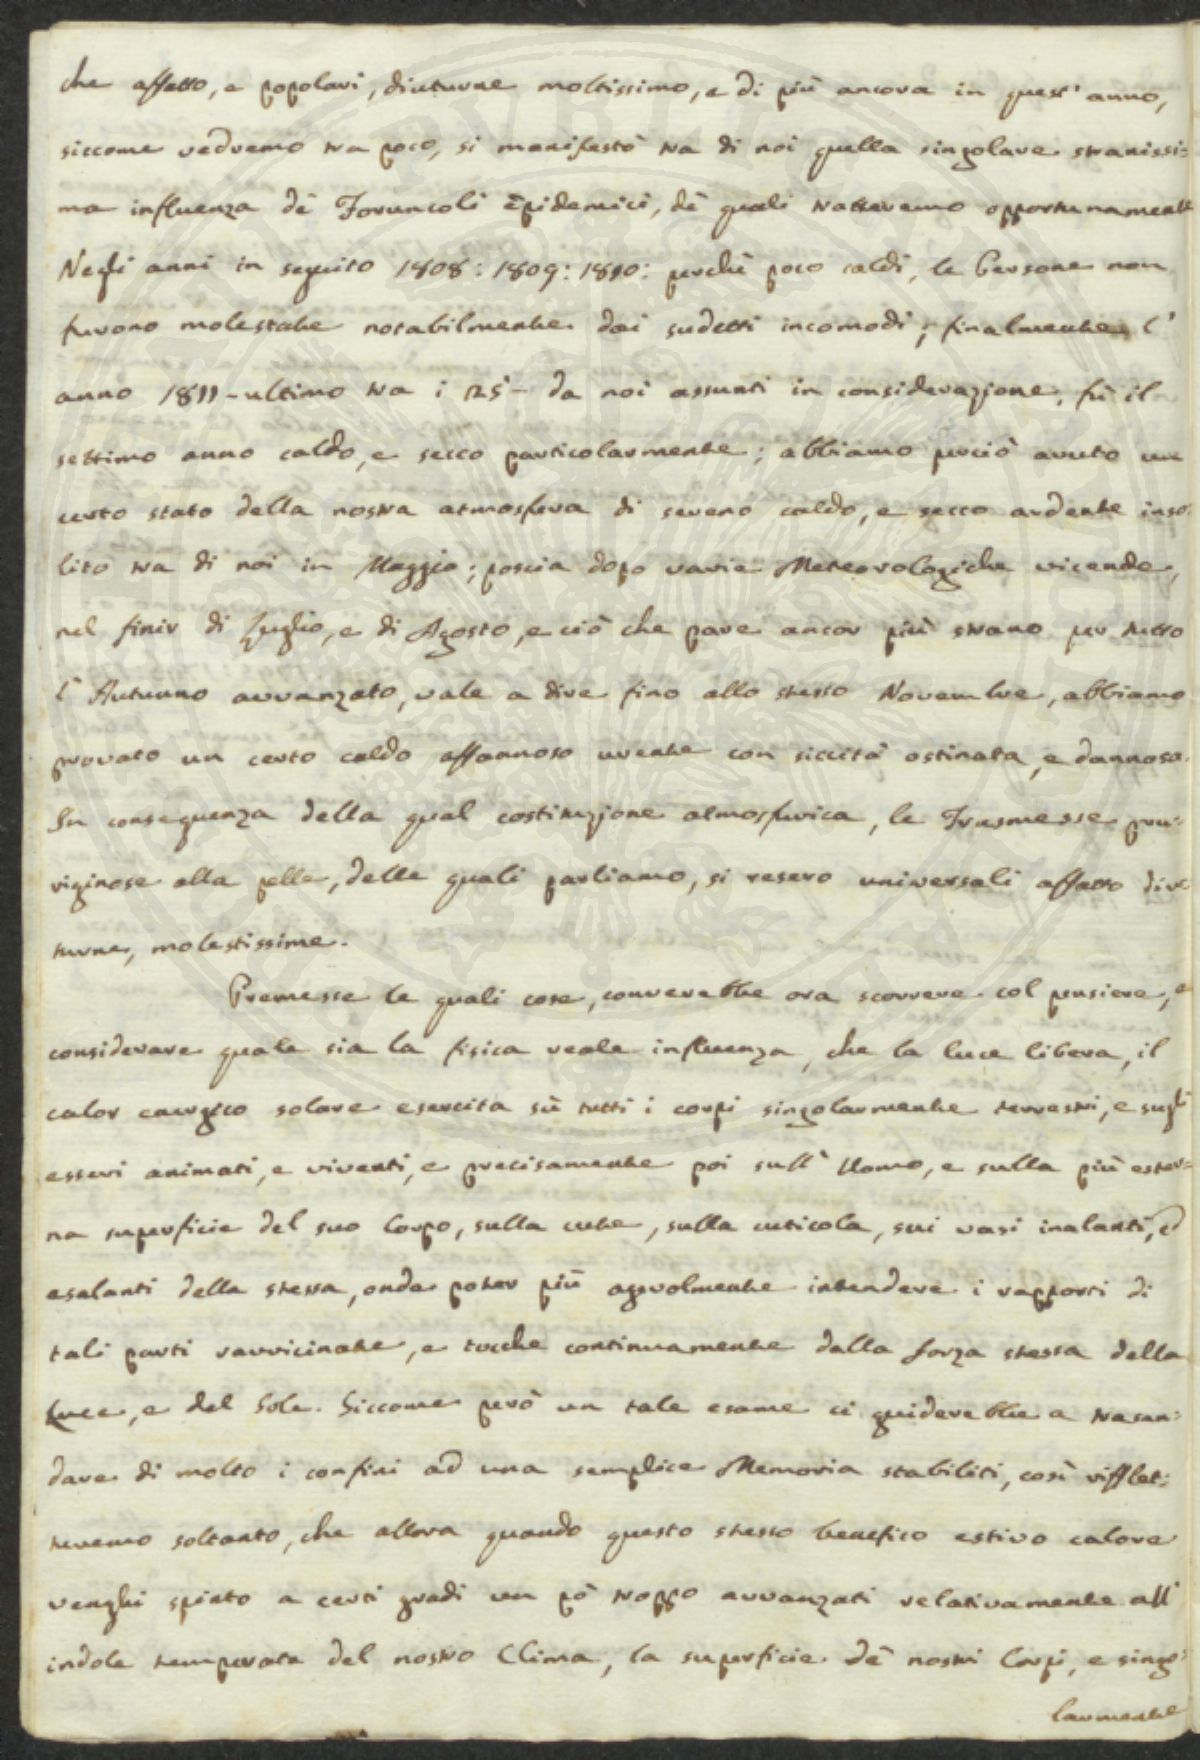 che affatto, e popolari, diuturne moltissimo, e di più ancora in quest'anno,
siccome vedremo tra poco, si manifestò tra di noi quella singolare stranissi:
ma influenza dè Foruncoli Epidemici, dè quali tratteremo opportunamente
Negli anni in seguito 1808: 1809: 1810: perchè poco caldi, le Persone non
furono molestate notabilmente dai sudetti incomodi; finalmente l'
anno 1811 - ultimo tra i 25 - da noi assunti in considerazione, fù il
settimo anno caldo, e secco particolarmente; abbiamo perciò avuto un
certo stato della nostra atmosfera di sereno caldo, e secco ardente inso:
lito tra di noi in Maggio; poscia dopo varie Meteorologiche vicende,
nel finir di Luglio, e di Agosto, e ciò che pare ancor più strano per tutto
l'Autunno avvanzato, vale a dire fino allo stesso Novembre, abbiamo
provato un certo caldo affannoso urente con siccità ostinata, e dannosa.
In conseguenza della qual costituzione atmosferica, le Trasmesse pru:
riginose alla pelle, delle quali parliamo, si resero universali affatto diu:
turne, molestissime.
Premesse le quali cose, converrebbe ora scorrere col pensiere, e
considerare quale sia la fisica reale influenza, che la luce libera, il
calor energico solare esercita sù tutti i corpi singolarmente terrestri, e sugli
esseri animati, e viventi, e precisamente poi sull'Uomo, e sulla più ester:
na superficie del suo Corpo, sulla cute, sulla cuticola, sui vasi inalanti, ed
esalanti della stessa, onde poter più agevolmente intendere i rapporti di
tali parti ravvicinate, e tocche continuamente dalla forza stessa della
Luce, e del Sole. Siccome però un tale esame ci guiderebbe a trascen:
dare di molto i confini ad una semplice Memoria stabiliti, così rifflet:
teremo soltanto, che allora quando questo stesso benefico estivo calore
venghi spinto a certi gradi un pò troppo avvanzati relativamente all'
indole temperata del nostro Clima, la superficie dè nostri Corpi, e singo:
larmente